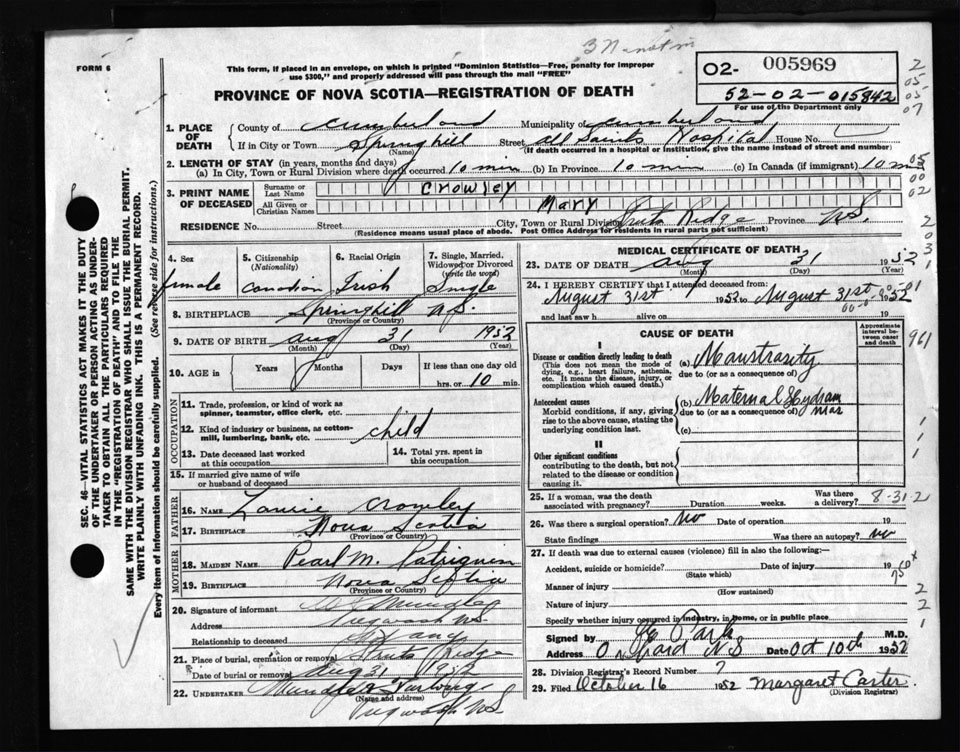 FORM 6
This form, if placed in an envelope, on which is printed "Dominion Statistics—Free, penalty for improper
use $300," and properly addressed will pass through the mail "FREE"
PROVINCE OF NOVA SCOTIA—REGISTRATION OF DEATH
02- 005969
52-02-015842
For use of the Department only
1. PLACE OF DEATH
County of Cumberland Municipality of Cumberland
If in City or Town Springhill Street All Saints Hospital House No.
(Name) (If death occurred in a hospital or institution, give the name instead of street and number)
2. LENGTH OF STAY (in years, months and days)
(a) In City, Town or Rural Division where death occurred 10 min (b) In Province 10 min (c) In Canada (if immigrant) 10 min
3. PRINT NAME OF DECEASED
Surname or Last Name Crowley
All Given or Christian Names Mary
RESIDENCE No. Street City, Town or Rural Division Ridge Province N.S.
(Residence means usual place of abode. Post Office Address for residents in rural parts not sufficient)
4. Sex female
5. Citizenship (Nationality) Canadian
6. Racial Origin Irish
7. Single, Married, Widowed or Divorced (write the word) Single
8. BIRTHPLACE Springhill N.S.
(Province or Country)
9. DATE OF BIRTH Aug 31 1952
(Month) (Day) (Year)
10. AGE in Years Months Days If less than one day old
hrs. or 10 min.
OCCUPATION
11. Trade, profession, or kind of work as spinner, teamster, office clerk, etc.
12. Kind of industry or business, as cotton-mill, lumbering, bank, etc. child
13. Date deceased last worked at this occupation
14. Total yrs. spent in this occupation
15. If married give name of wife or husband of deceased
FATHER
16. NAME Crowley
17. BIRTHPLACE Nova Scotia
(Province or Country)
MOTHER
18. MAIDEN NAME Pearl M. Patriquin
19. BIRTHPLACE Nova Scotia
(Province or Country)
20. Signature of informant
Address Pugwash N.S.
Relationship to deceased
21. Place of burial, cremation or removal Ridge
Date of burial or removal Aug 31 1952
22. UNDERTAKER
(Name and address)
Pugwash N.S.
MEDICAL CERTIFICATE OF DEATH
23. DATE OF DEATH Aug 31 1952
(Month) (Day) (Year)
24. I HEREBY CERTIFY that I attended deceased from:
August 31st 1952 to August 31st 1952
and last saw h alive on
CAUSE OF DEATH
Approximate interval between onset and death
I
Disease or condition directly leading to death
(This does not mean the mode of dying, e.g., heart failure, asthenia, etc. It means the disease, injury, or complication which caused death.)
(a) Monstrosity
due to (or as a consequence of)
Antecedent causes
Morbid conditions, if any, giving rise to the above cause, stating the underlying condition last.
(b) Maternal Hydram
due to (or as a consequence of) nios
(c)
II
Other significant conditions
contributing to the death, but not related to the disease or condition causing it.
25. If a woman, was the death associated with pregnancy? Duration weeks. Was there a delivery? 8-31-2
26. Was there a surgical operation? no Date of operation 19
State findings Was there an autopsy? no
27. If death was due to external causes (violence) fill in also the following:—
Accident, suicide or homicide? Date of injury 19
(State which)
Manner of injury
(How sustained)
Nature of injury
Specify whether injury occurred in industry, in home, or in public place
Signed by M.D.
Address Oxford N S Date Oct 10th 1952
28. Division Registrar's Record Number ?
29. Filed October 16 1952 Margaret Carter.
(Division Registrar)
SEC. 46—VITAL STATISTICS ACT MAKES IT THE DUTY
OF THE UNDERTAKER OR PERSON ACTING AS UNDER-
TAKER TO OBTAIN ALL THE PARTICULARS REQUIRED
IN THE "REGISTRATION OF DEATH" AND TO FILE THE
SAME WITH THE DIVISION REGISTRAR WHO SHALL ISSUE THE BURIAL PERMIT.
WRITE PLAINLY WITH UNFADING INK. THIS IS A PERMANENT RECORD.
Every item of information should be carefully supplied. (See reverse side for instructions.)